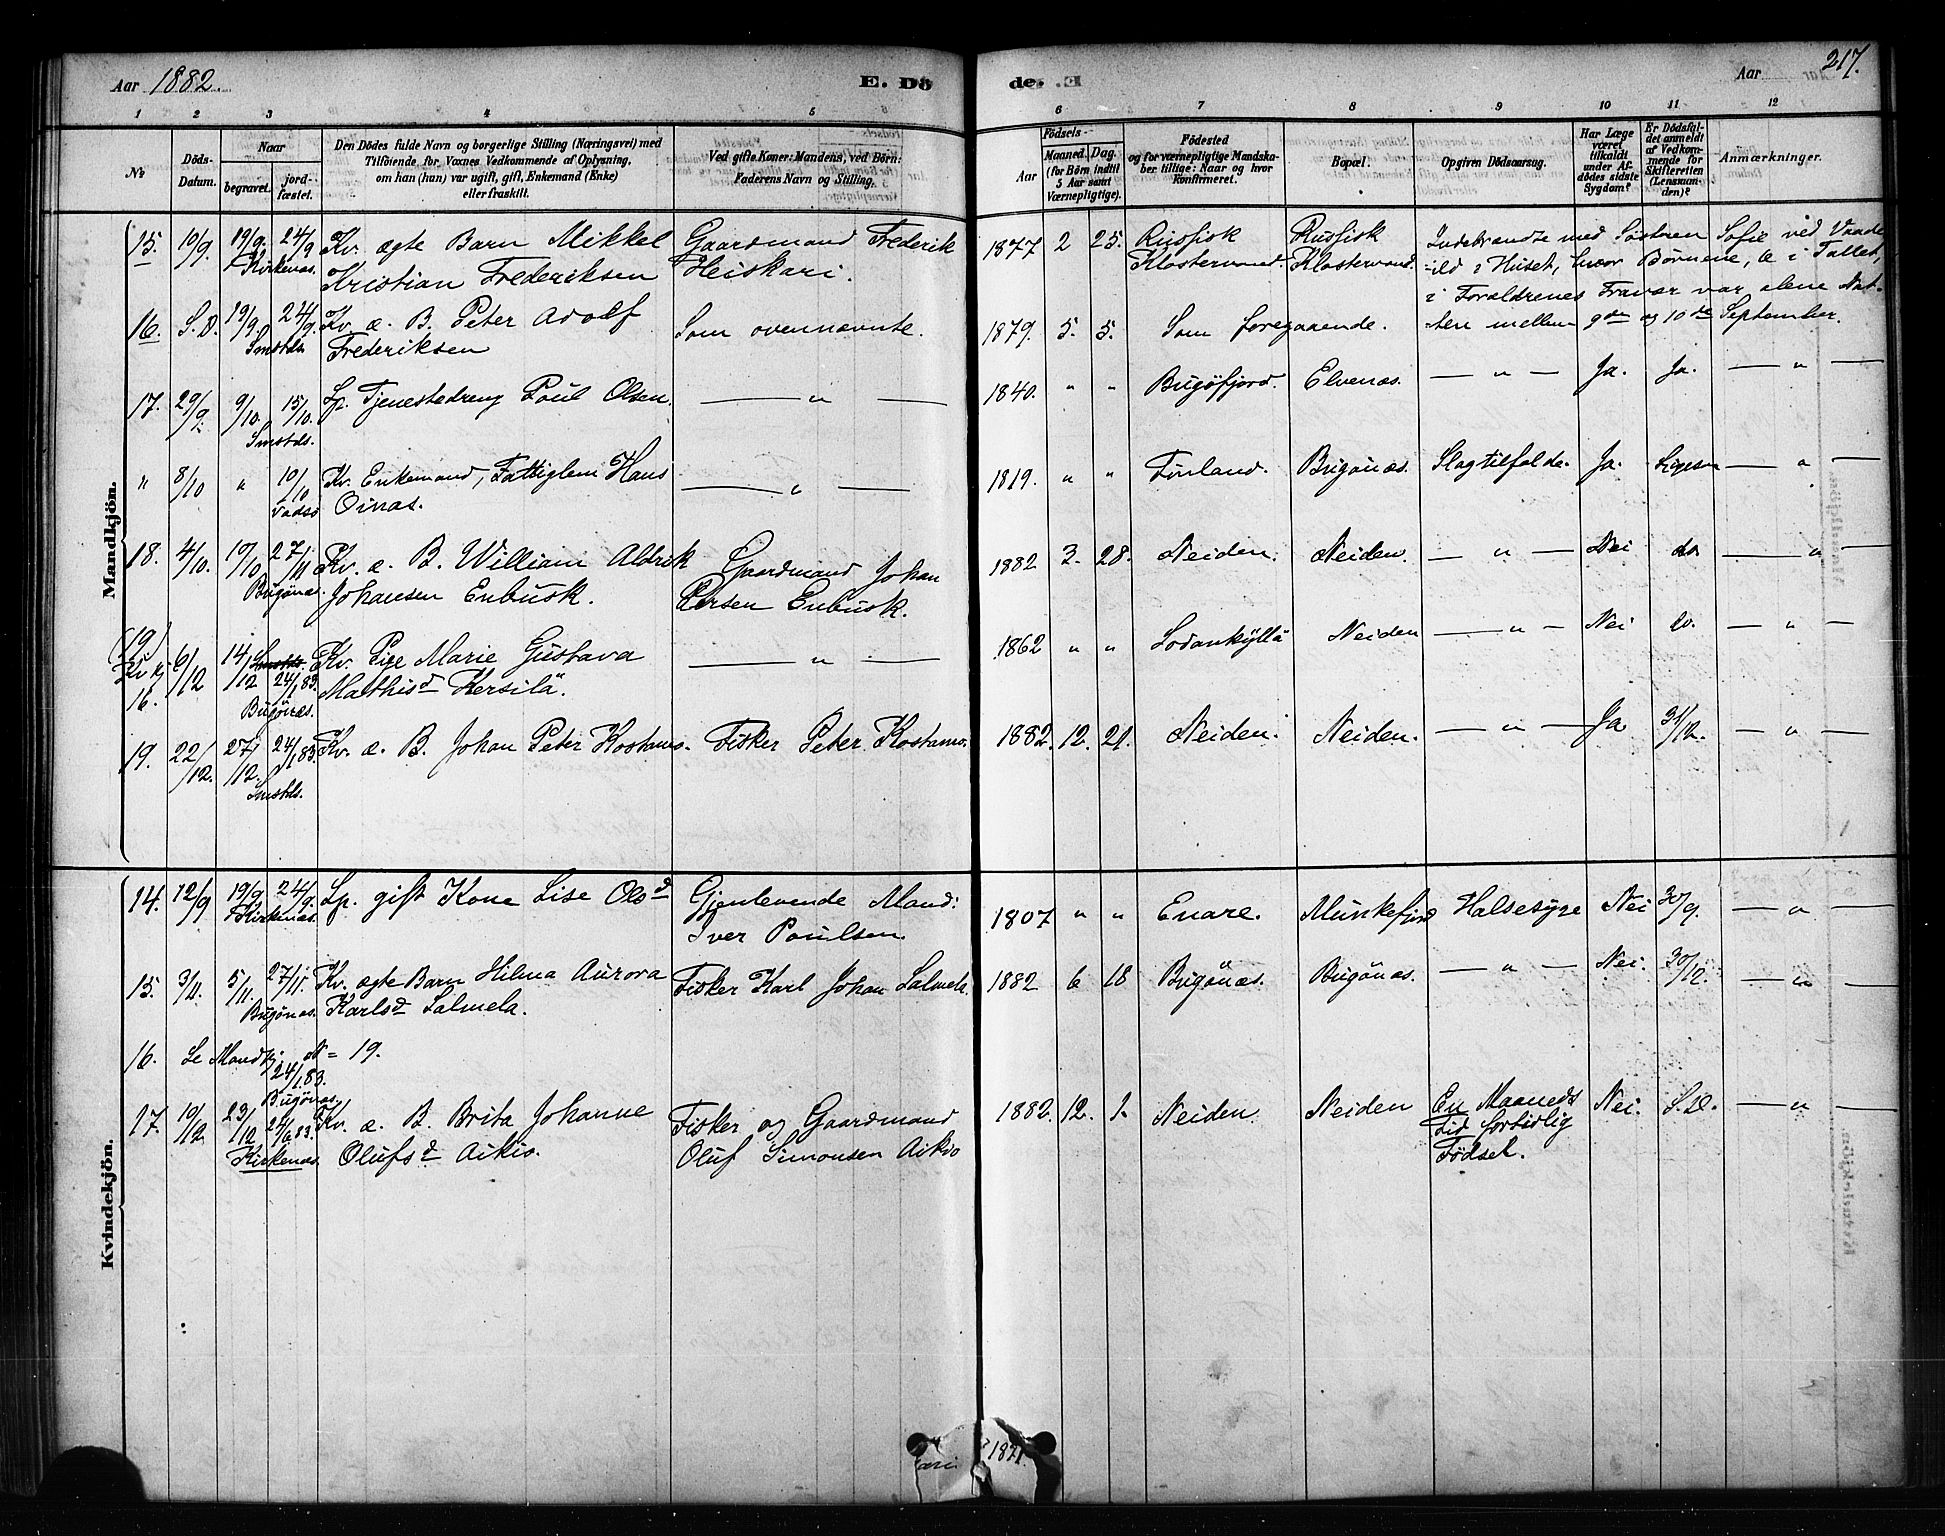 Aar 1882. E. Dö
1 2 3 4 5
No
Döds-Datum.
Naar
begravet.
jord-fæstet.
Den Dödes fulde Navn og borgerlige Stilling (Næringsvei) med
Tilföiende for Voxnes Vedkommende af Oplysning,
om han (hun) var ugift, gift, Enkemand (Enke)
eller fraskilt.
Ved gifte Koner: Mandens, ved Börn:
Faderens Navn og Stilling.
de. Aar 217.
6 7 8 9 10 11 12
Födsels-
Aar
Maaned. Dag.
(for Börn indtil
5 Aar samt
Værnepligtige).
Födested
og for værnepligtige Mandska-
ber tillige: Naar og hvor
Konfirmeret.
Bopæl.
Opgiven Dödsaarsag.
Har Læge
været
tilkaldt
under Af-
dödes sidste
Sygdom?
Er Dödsfal-
det anmeldt
af Vedkom-
mende for
Skifteretten
(Lensman-
den)?
Anmærkninger.
Mandkjön.
15. 10/9. 19/9. 24/9 Kv. ægte Barn Mikkel Gaardmand Frederik 1877 2 25. Russisk Russisk Indebrændte med Søstren Sofie ved Vaade
Kirkenæs. Kristian Frederiksen Heiskari. Klostervand. Klostervand. ild i Huset, hvor Børnene, 6 i Tallet,
i Forældrenes Fravær var alene Nat-
16. S.D. 19/9. 24/9. Kv. æ. B. Peter Adolf Som ovennævnte. 1879. 5. 5. Som foregaaende. ten mellem 9de og 10de September.
Smstds Frederiksen
17. 29/9. 9/10. 15/10. Lp. Tjenestedreng Poul Olsen. — " — 1840. " " Bugöfjord. Elvenæs. — " — Ja. Ja. — " —
Smstds.
" 8/10 " 10/10 Kv. Enkemand, Fattiglem Hans — " — 1819. " " Finland. Bugönæs. Slagtilfælde. Ja. — " —
Vadsö Oinas.
18. 4/10. 10/10 27/11 Kv. æ. B. William Aldrik Gaardmand Johan 1882 3. 28. Neiden. Neiden. — " — Nei do. — " —
Bugönæs. Johansen Enbusk. Persen Enbusk.
(19.)
Kv kj 16. 6/12 14/12 Smstds. 24/1 83. Kv. Pige Marie Gustava — " — 1862 " " Sodankyllä Neiden — " — Nei do. — " —
Bugönæs. Mathisd Kersilä.
19. 22/12. 27/12. 24/1 83. Kv. æ. B. Johan Peter Kostamo. Fisker Peter Kostamo. 1882. 12. 21. Neiden. Neiden. — " — Ja 31/12. — " —
Smstds.
Kvindekjön.
14. 12/9 19/9 24/9. Lp. gift Kone Lise Olsd Gjenlevende Mand: 1807 " " Enare. Munkefjord Halsesyge Nei 30/9. — " —
Kirkenæs. Iver Poulsen.
15. 3/11. 5/11. 27/11. Kv. ægte Barn Hilma Aurora Fisker Karl Johan Salmela. 1882 6 18 Bugönæs. Bugönæs. — " — Nei. 30/12. — " —
Bugönæs. Karlsd Salmela.
16. Se Mandkj. N = 19.
24/1 83.
Bugönæs.
17. 19/12 23/12 24/6 83. Kv. æ. B. Brita Johanne Fisker og Gaardmand 1882. 12. 1. Neiden Neiden En Maaneds Nei. S.D. — " —
Kirkenæs Olufsd Aikio. Oluf Simonsen Aikio Tid fortidlig
Födsel.
1871.